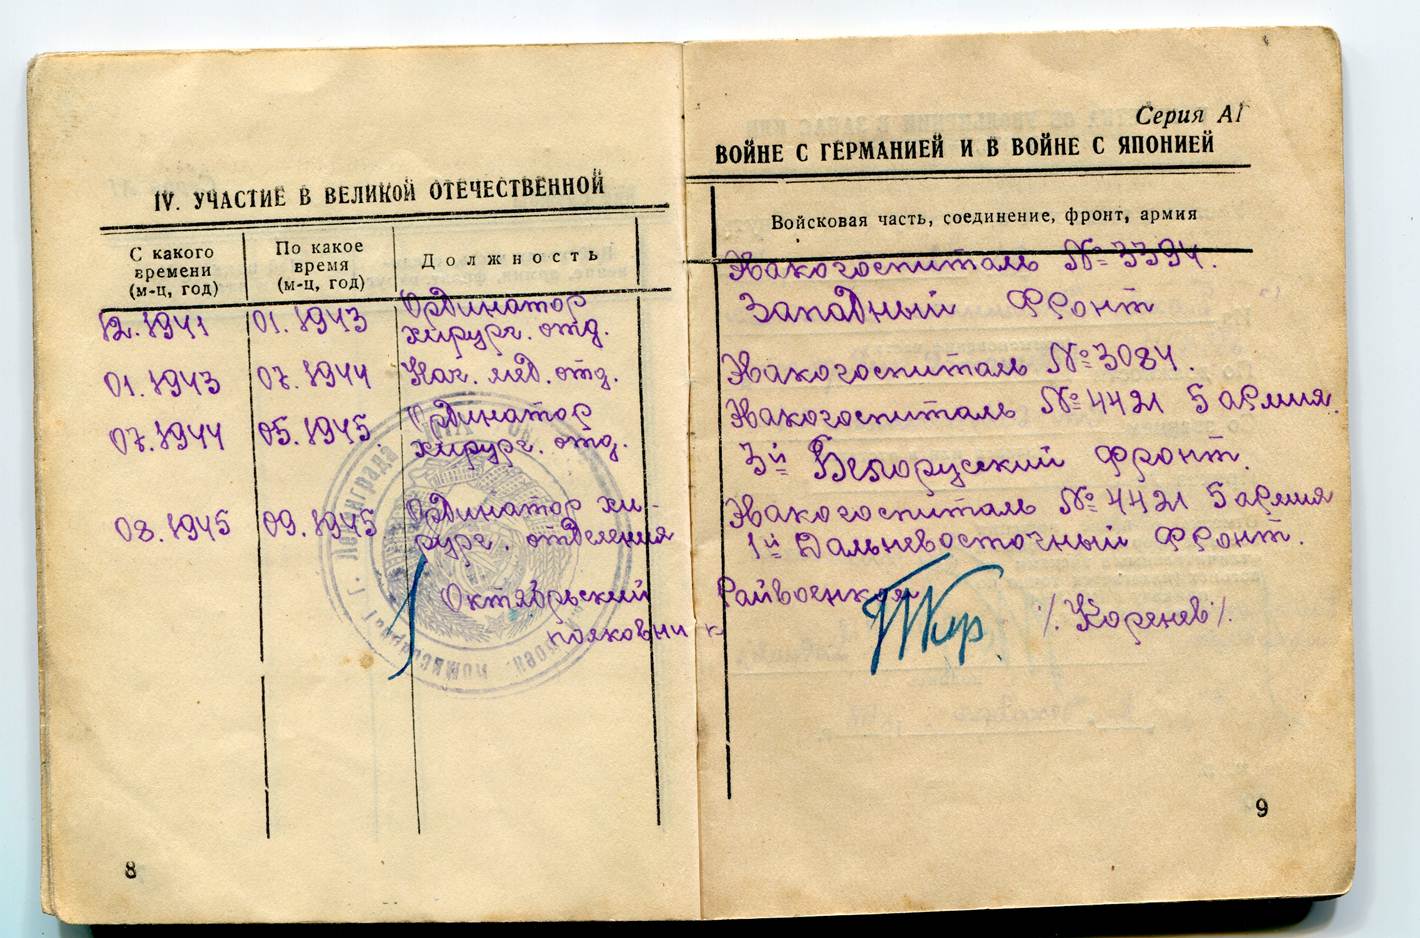 IV. УЧАСТИЕ В ВЕЛИКОЙ ОТЕЧЕСТВЕННОЙ
С какого времени (м-ц, год)
По какое время (м-ц, год)
Должность
12.1941 01.1943 Ординатор
хирург. отд.
01.1943 07.1944 Нач. мед. отд.
07.1944 05.1945. Ординатор
хирург. отд.
08.1945 09.1945 Ординатор хи-
рург. отделения
Октябрьский
полковник
г. Ленинграда
8
Серия АГ
ВОЙНЕ С ГЕРМАНИЕЙ И В ВОЙНЕ С ЯПОНИЕЙ
Войсковая часть, соединение, фронт, армия
Эвакогоспиталь № 3394.
Западный Фронт
Эвакогоспиталь № 3084.
Эвакогоспиталь № 4421 5 армия.
3й Белорусский Фронт.
Эвакогоспиталь № 4421 5 армия
1й Дальневосточный Фронт.
Райвоенком
/. Коренев/.
9